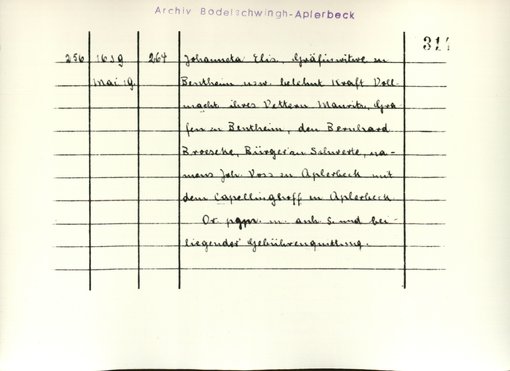 Archiv Bodelschwingh-Aplerbeck
256 1619 264 Johanneta Elis. Gräfinwitwe zu
Mai 19. Bentheim usw. belehnt Kraft Voll-
macht ihres Vettern Maurits, Gra-
fen zu Bentheim, den Bernhard
Broescke, Bürger zu Schwerte, na-
mens Joh. Voss zu Aplerbeck mit
dem Capellinghoff in Aplerbeck.
Or. pgm. m. anh. S. und bei-
liegender Gebührenquittung.